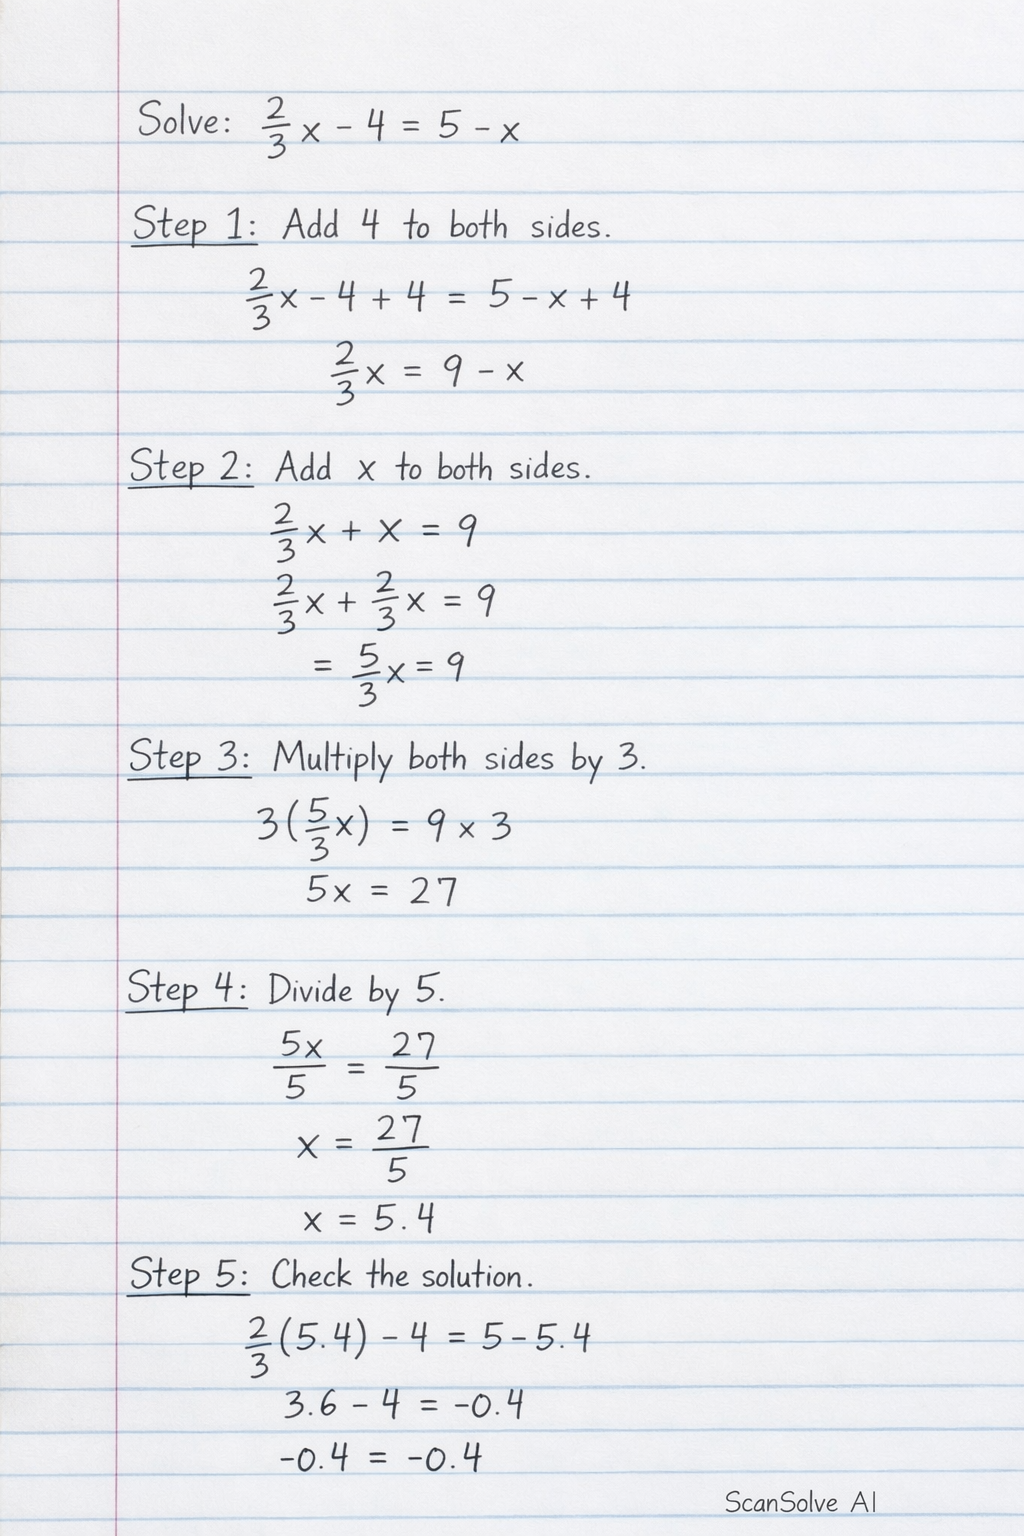 Solve: 2/3 x - 4 = 5 - x
Step 1: Add 4 to both sides.
2/3 x - 4 + 4 = 5 - x + 4
2/3 x = 9 - x
Step 2: Add x to both sides.
2/3 x + x = 9
2/3 x + 2/3 x = 9
= 5/3 x = 9
Step 3: Multiply both sides by 3.
3(5/3 x) = 9 × 3
5x = 27
Step 4: Divide by 5.
5x/5 = 27/5
x = 27/5
x = 5.4
Step 5: Check the solution.
2/3 (5.4) - 4 = 5 - 5.4
3.6 - 4 = -0.4
-0.4 = -0.4
ScanSolve AI